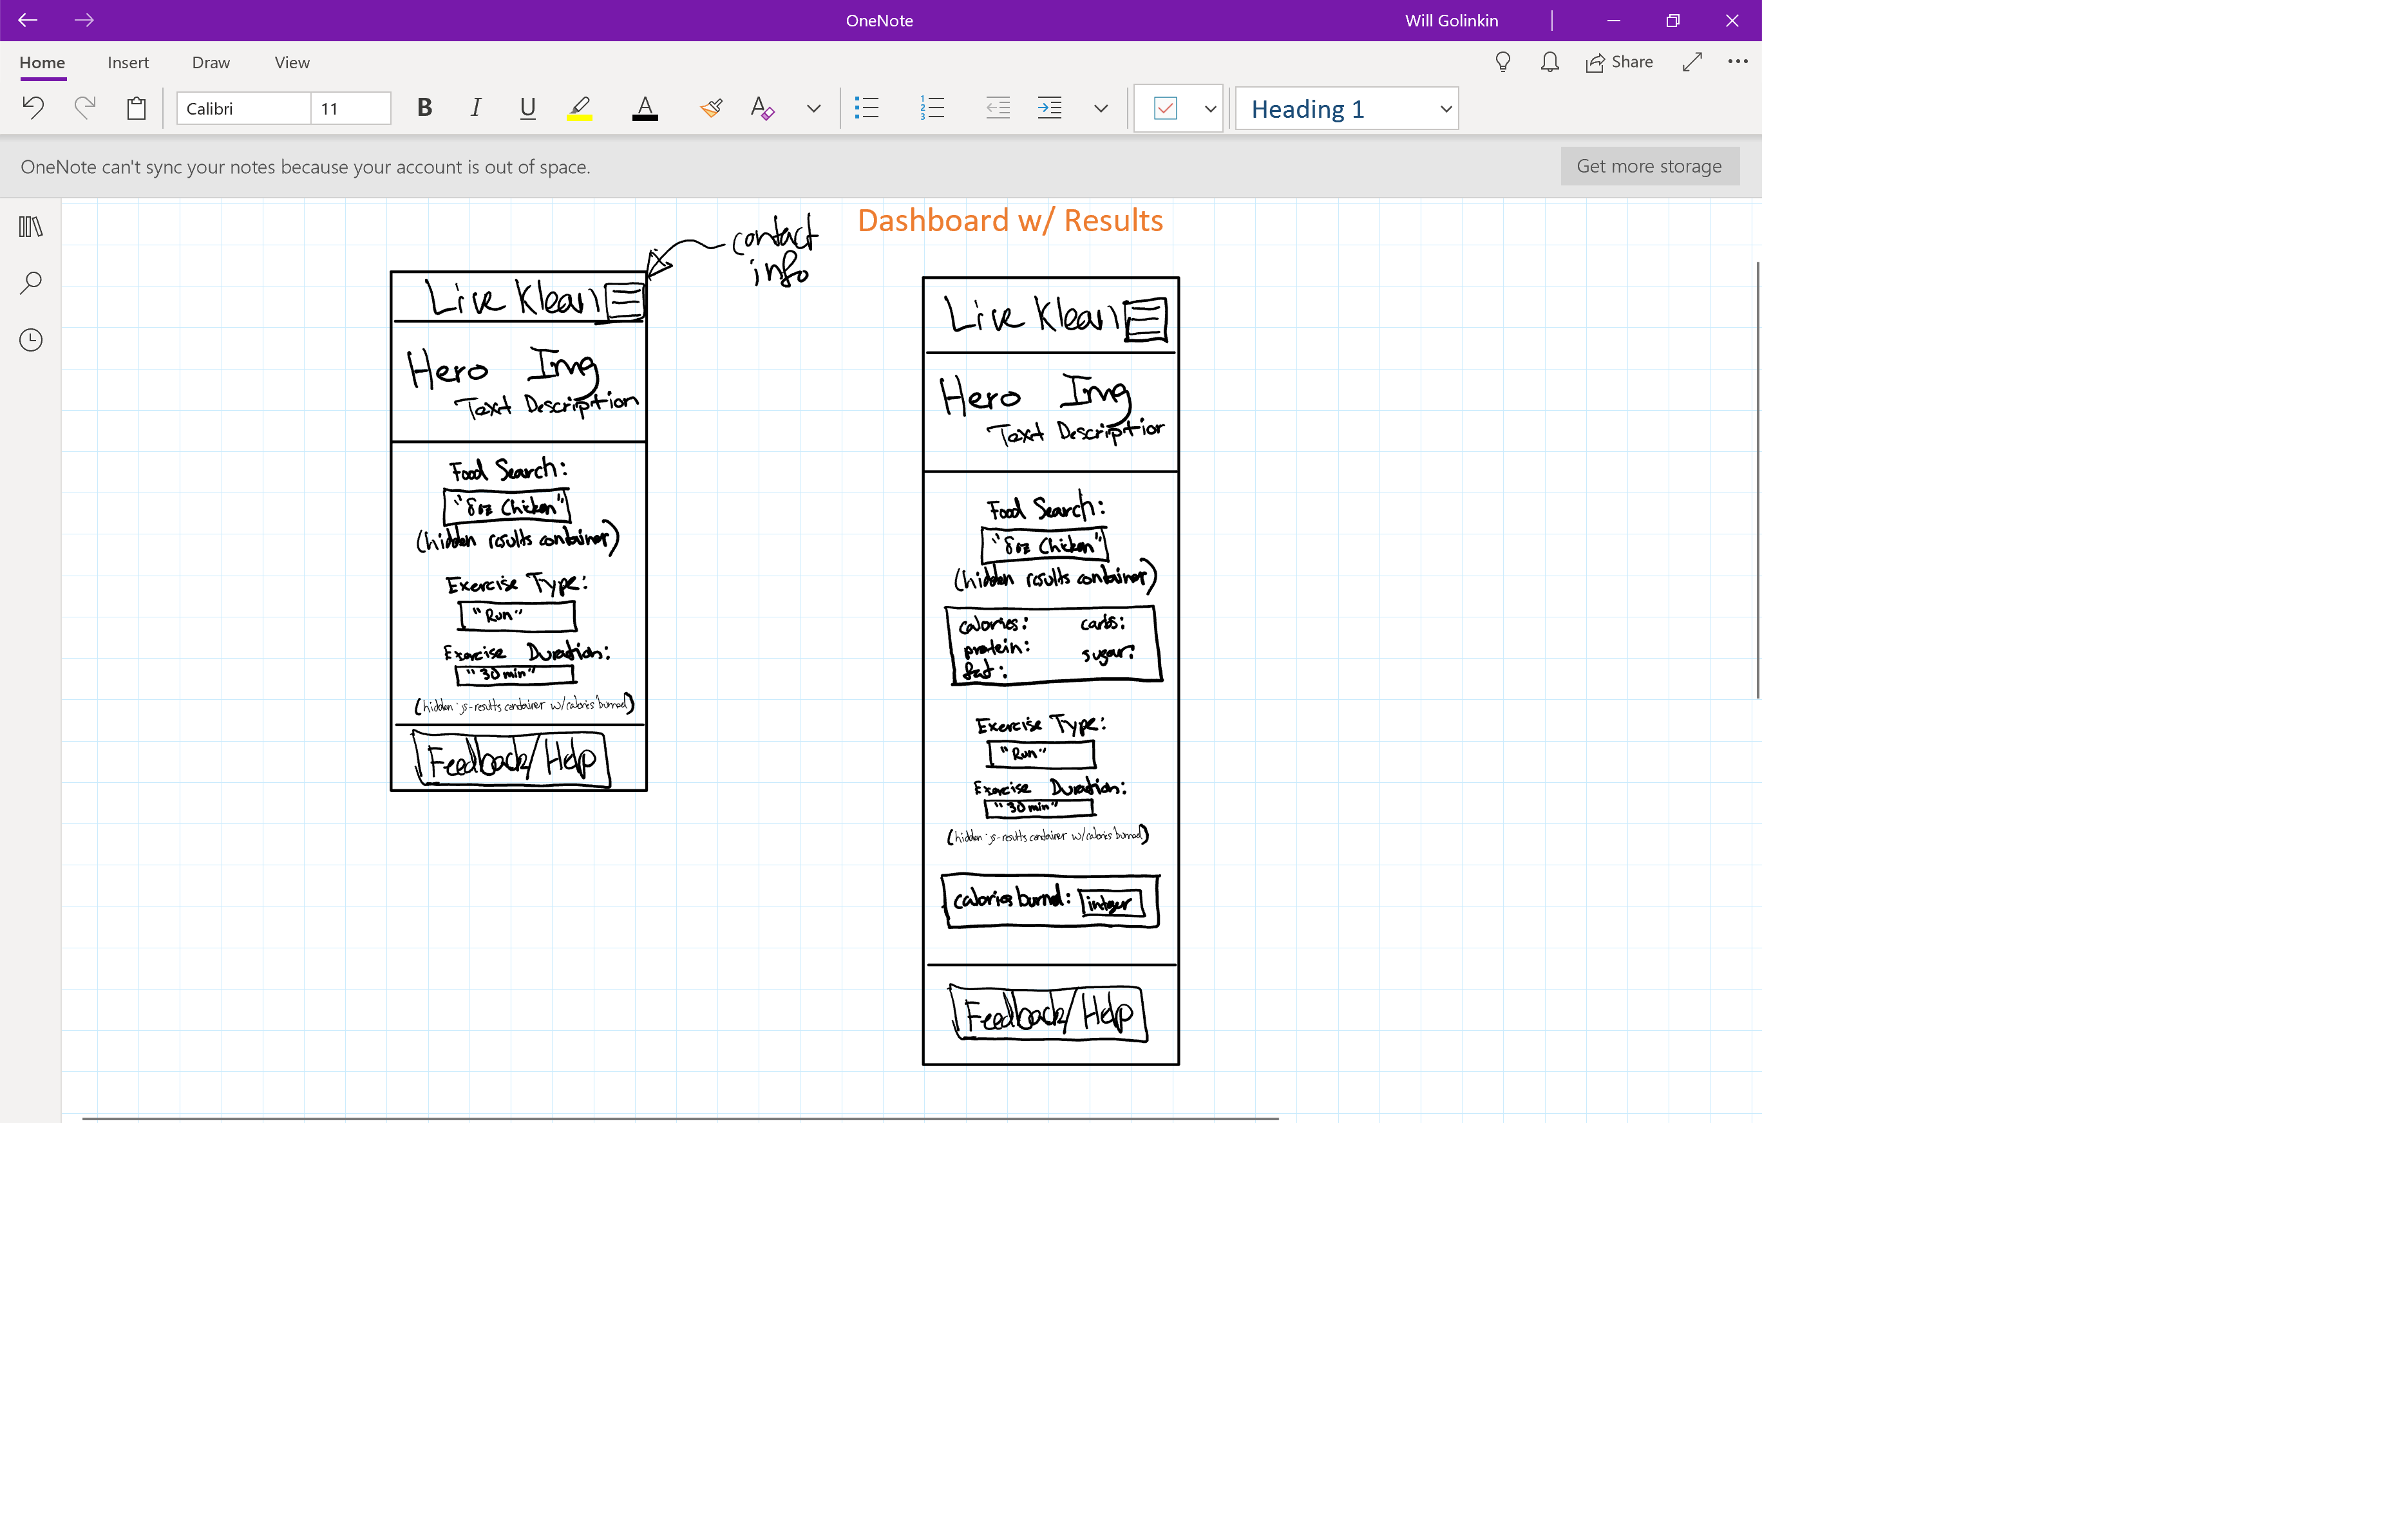 OneNote
Will Golinkin
Home Insert Draw View
Share
Calibri 11 B I U A A Heading 1
OneNote can't sync your notes because your account is out of space.
Get more storage
Dashboard w/ Results
contact
info
Live Klean
Hero Img
Text Description
Food Search:
"8oz Chicken"
(hidden results container)
Exercise Type:
"Run"
Exercise Duration:
"30 min"
(hidden js-results container w/calories burned)
Feedback/Help
Live Klean
Hero Img
Text Description
Food Search:
"8oz Chicken"
(hidden results container)
calories: carbs:
protein: sugar:
fat:
Exercise Type:
"Run"
Exercise Duration:
"30 min"
(hidden js-results container w/calories burned)
calories burned: integer
Feedback/Help